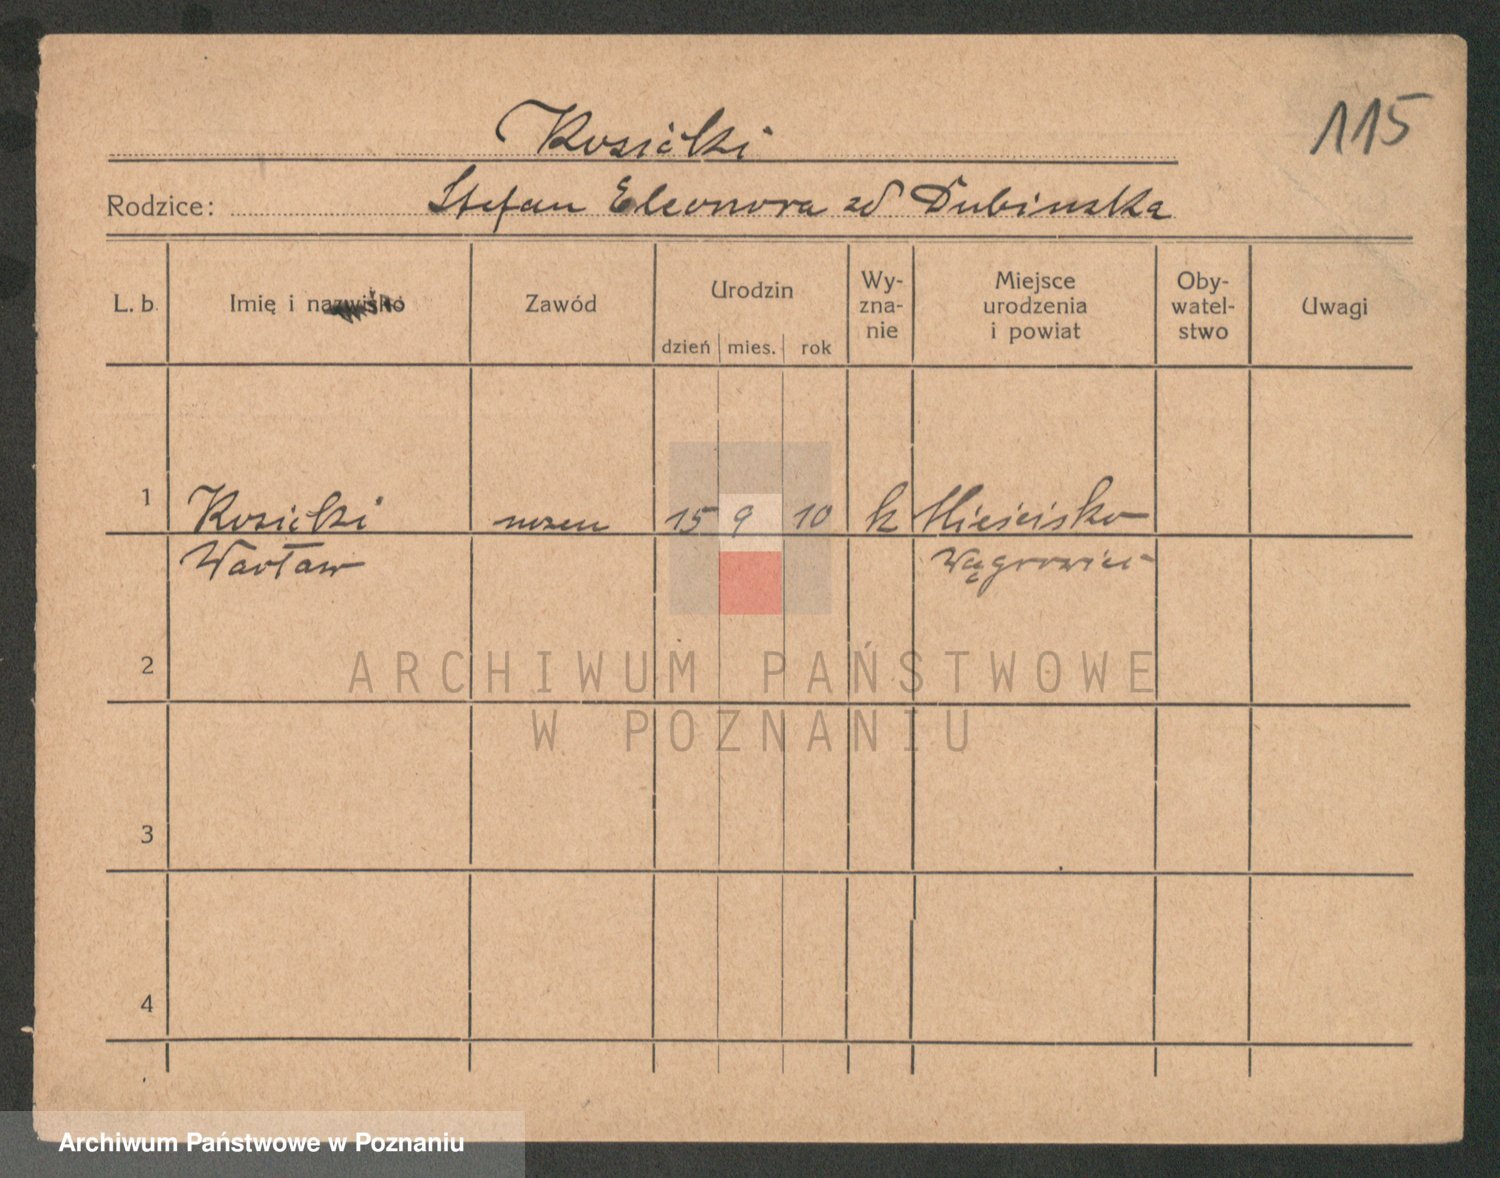 115
Kosicki
Rodzice: Stefan Eleonora zd Dubinska
L. b. Imię i nazwisko Zawód Urodzin Wy-
zna-
nie Miejsce
urodzenia
i powiat Oby-
watel-
stwo Uwagi
dzień mies. rok
1 Kosicki 15 9 10 k Mieścisko
Wacław Wągrowiec
2
3
4
ARCHIWUM PAŃSTWOWE
W POZNANIU
Archiwum Państwowe w Poznaniu